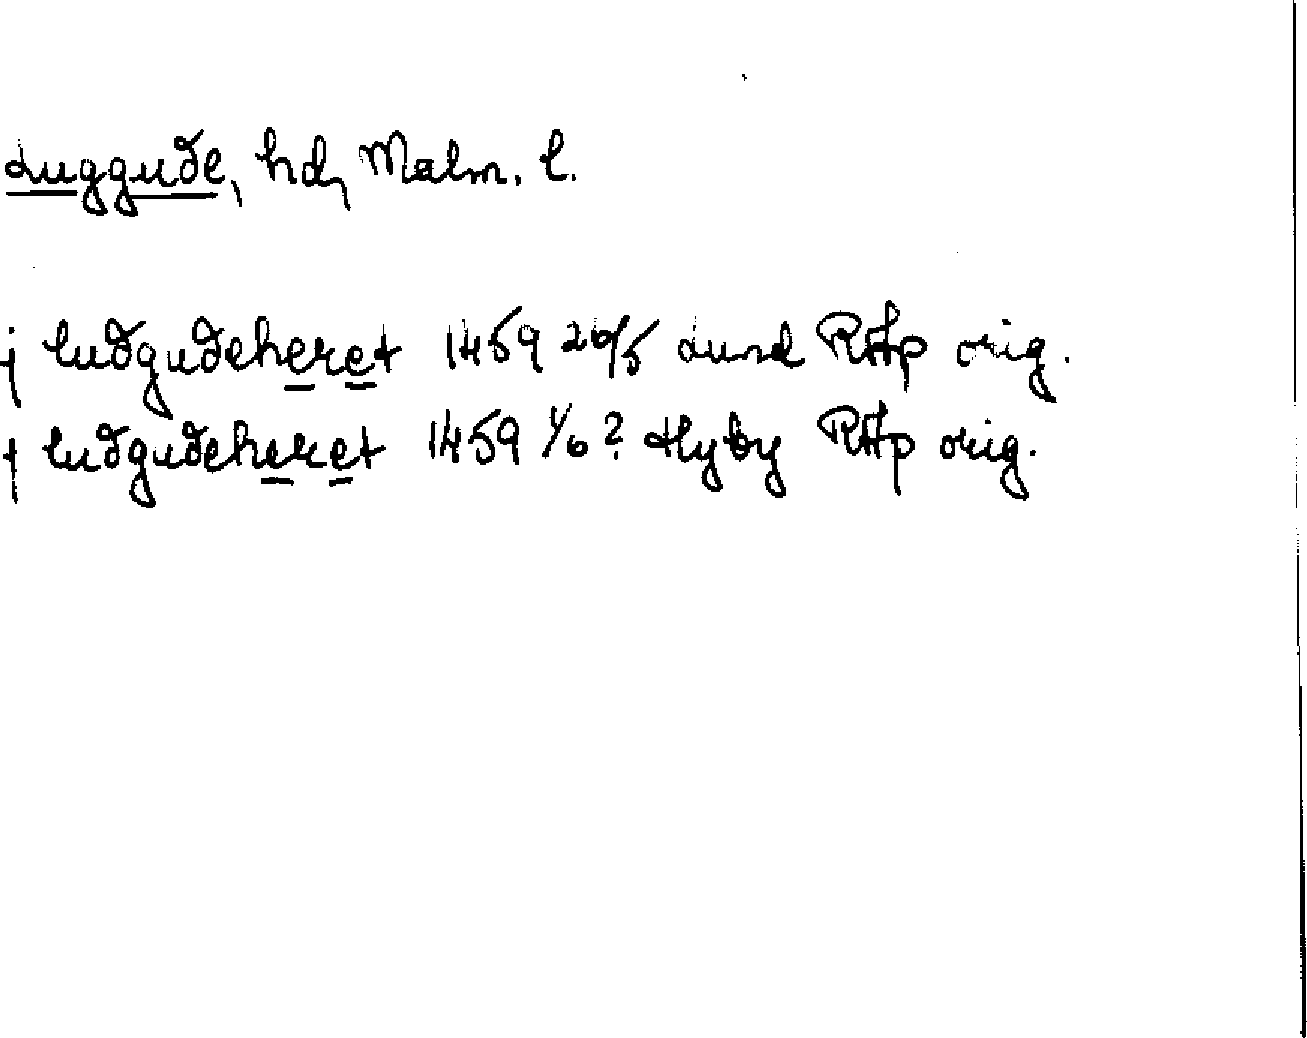 Luggude, hd, Malm. l.
j ludgudeheret 1459 26/5 Lund RAp orig.
j ludgudeheret 1459 1/6? Hyby RAp orig.